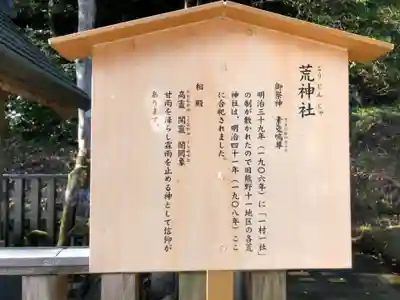 荒神社
こうじんしゃ
御祭神 素戔嗚尊
明治三十九年(一九〇六年)に「一村一社」
の制が敷かれたので旧熊野十一地区の各荒
神社は、明治四十一年(一九〇八年)ここ
に合祀されました。
相殿
高龗 闇龗 闇罔象
甘雨を降らし霖雨を止める神として信仰が
あります。